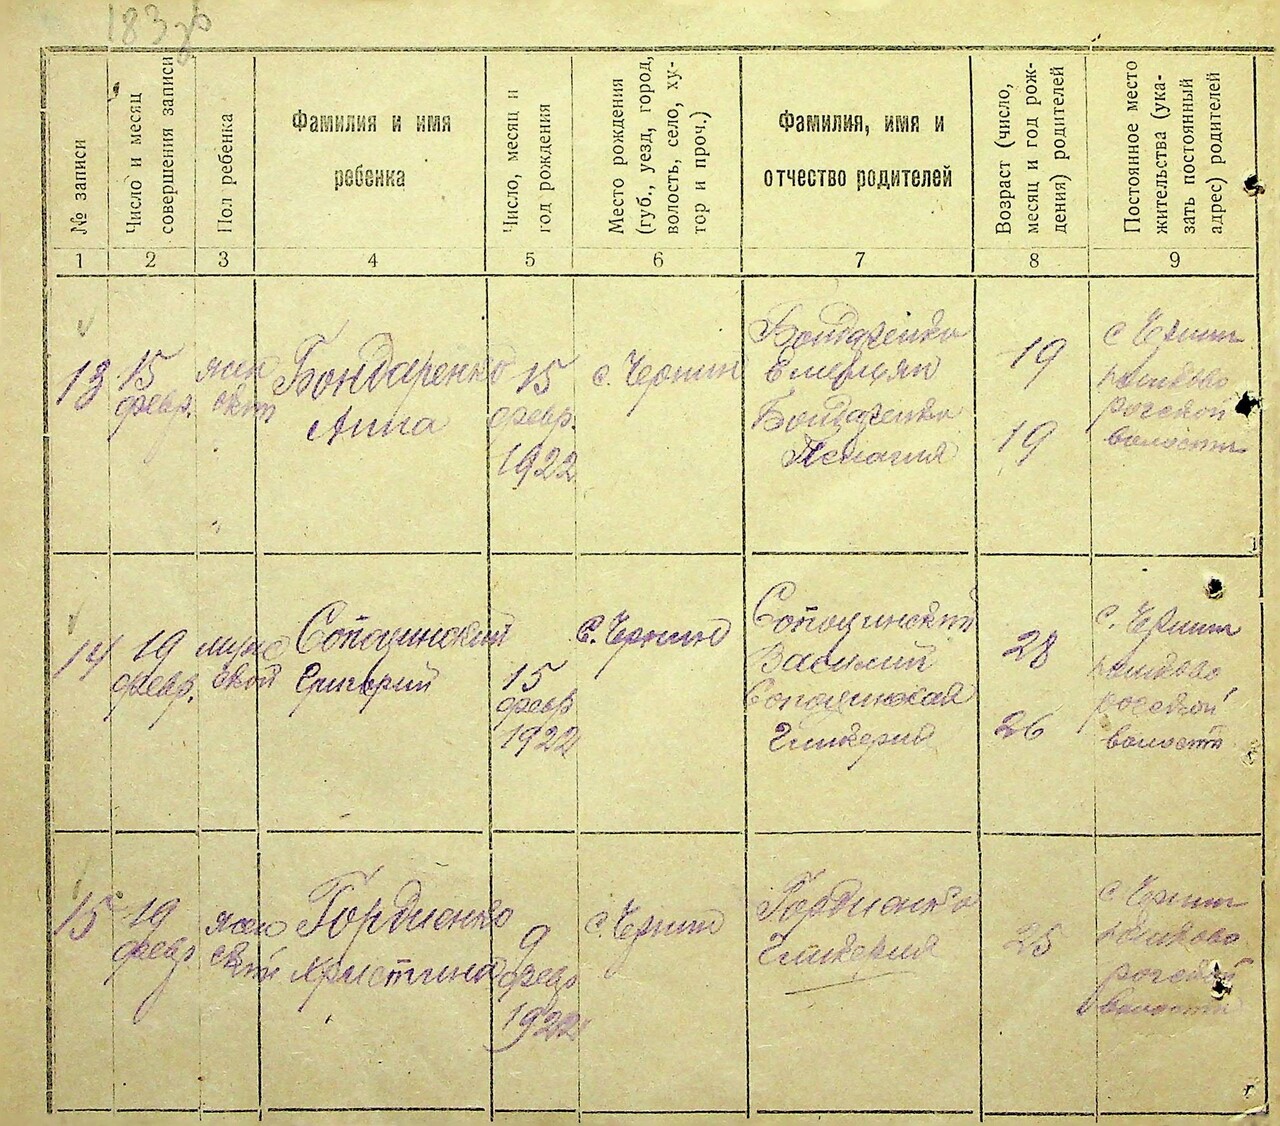 183 зв
№ записи
Число и месяц
совершения записи
Пол ребенка
Фамилия и имя
ребенка
Число, месяц и
год рождения
Место рождения
(губ., уезд, город,
волость, село, ху-
тор и проч.)
Фамилия, имя и
отчество родителей
Возраст (число,
месяц и год рож-
дения) родителей
Постоянное место
жительства (ука-
зать постоянный
адрес) родителей
1 2 3 4 5 6 7 8 9
13
15
февр.
жен
ский
Бондаренко
Анна
15
февр.
1922
с. Чернин
Бондаренко
Бондаренко
Пелагия
19
19
с Чернин
волости
14
19
февр.
муж
ской
Сополинский
Григорий
15
февр
1922
с. Чернин
Сополинский
Василий
Сополинская
Гликерия
28
26
с. Чернин
волости
15
19
февр
жен
ский
Гордиенко
Христина
9
февр
1922
с. Чернин
Гордиенко
Гликерия
25
с Чернин
волости